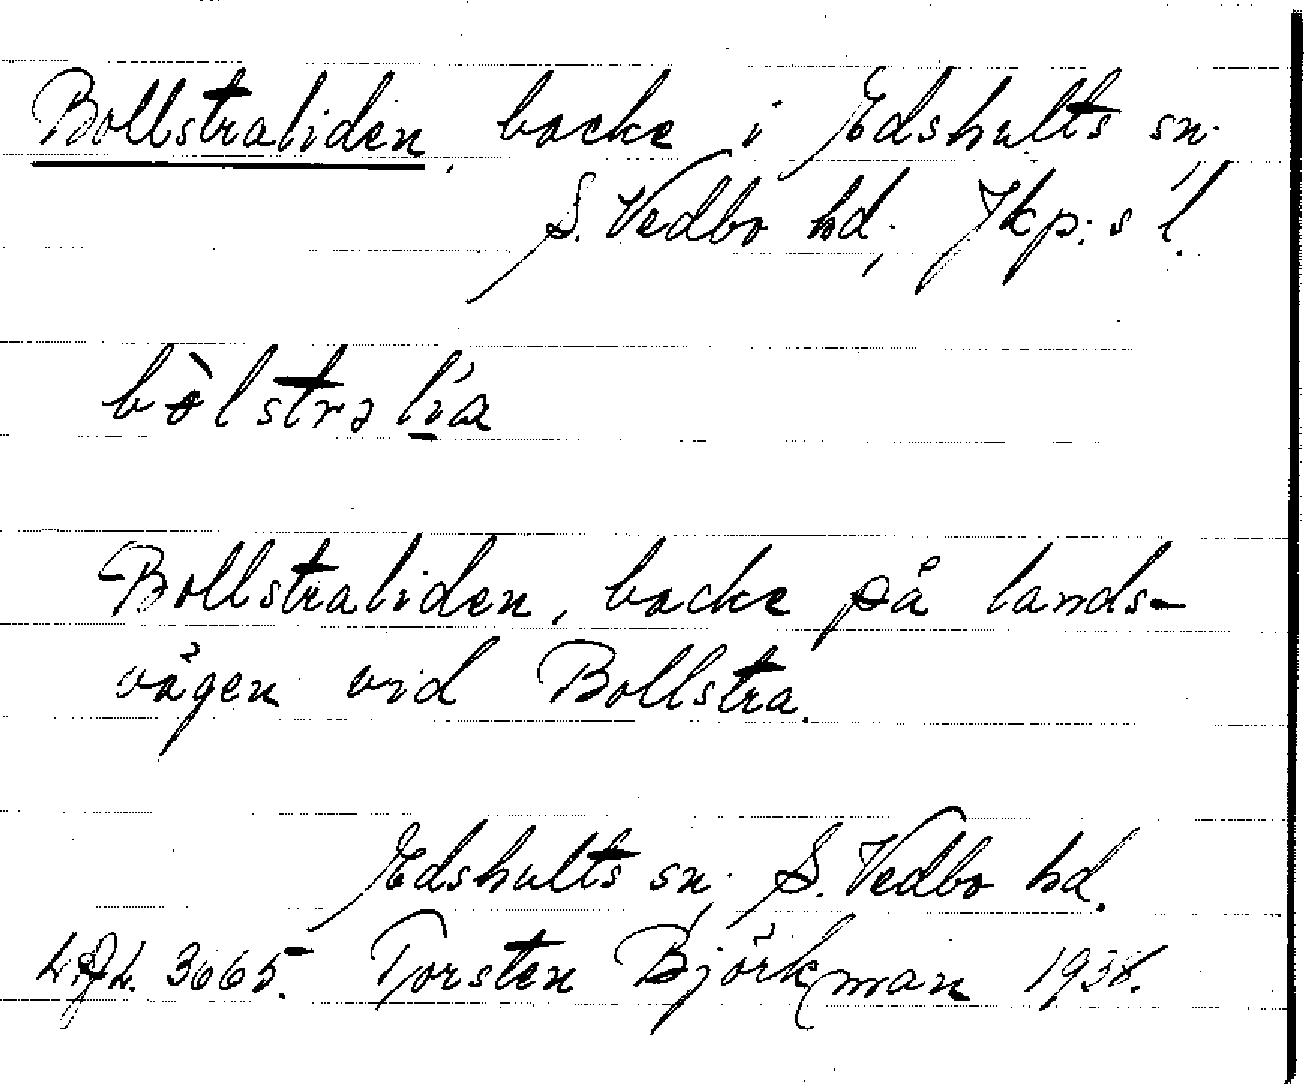 Bollstraliden, backe i Edshults sn;
S. Vedbo hd; Jkp:s l.
bòlstrəlía
Bollstraliden, backe på lands-
vägen vid Bollstra.
Edshults sn; S. Vedbo hd.
3665. Torsten Björkman 1938.